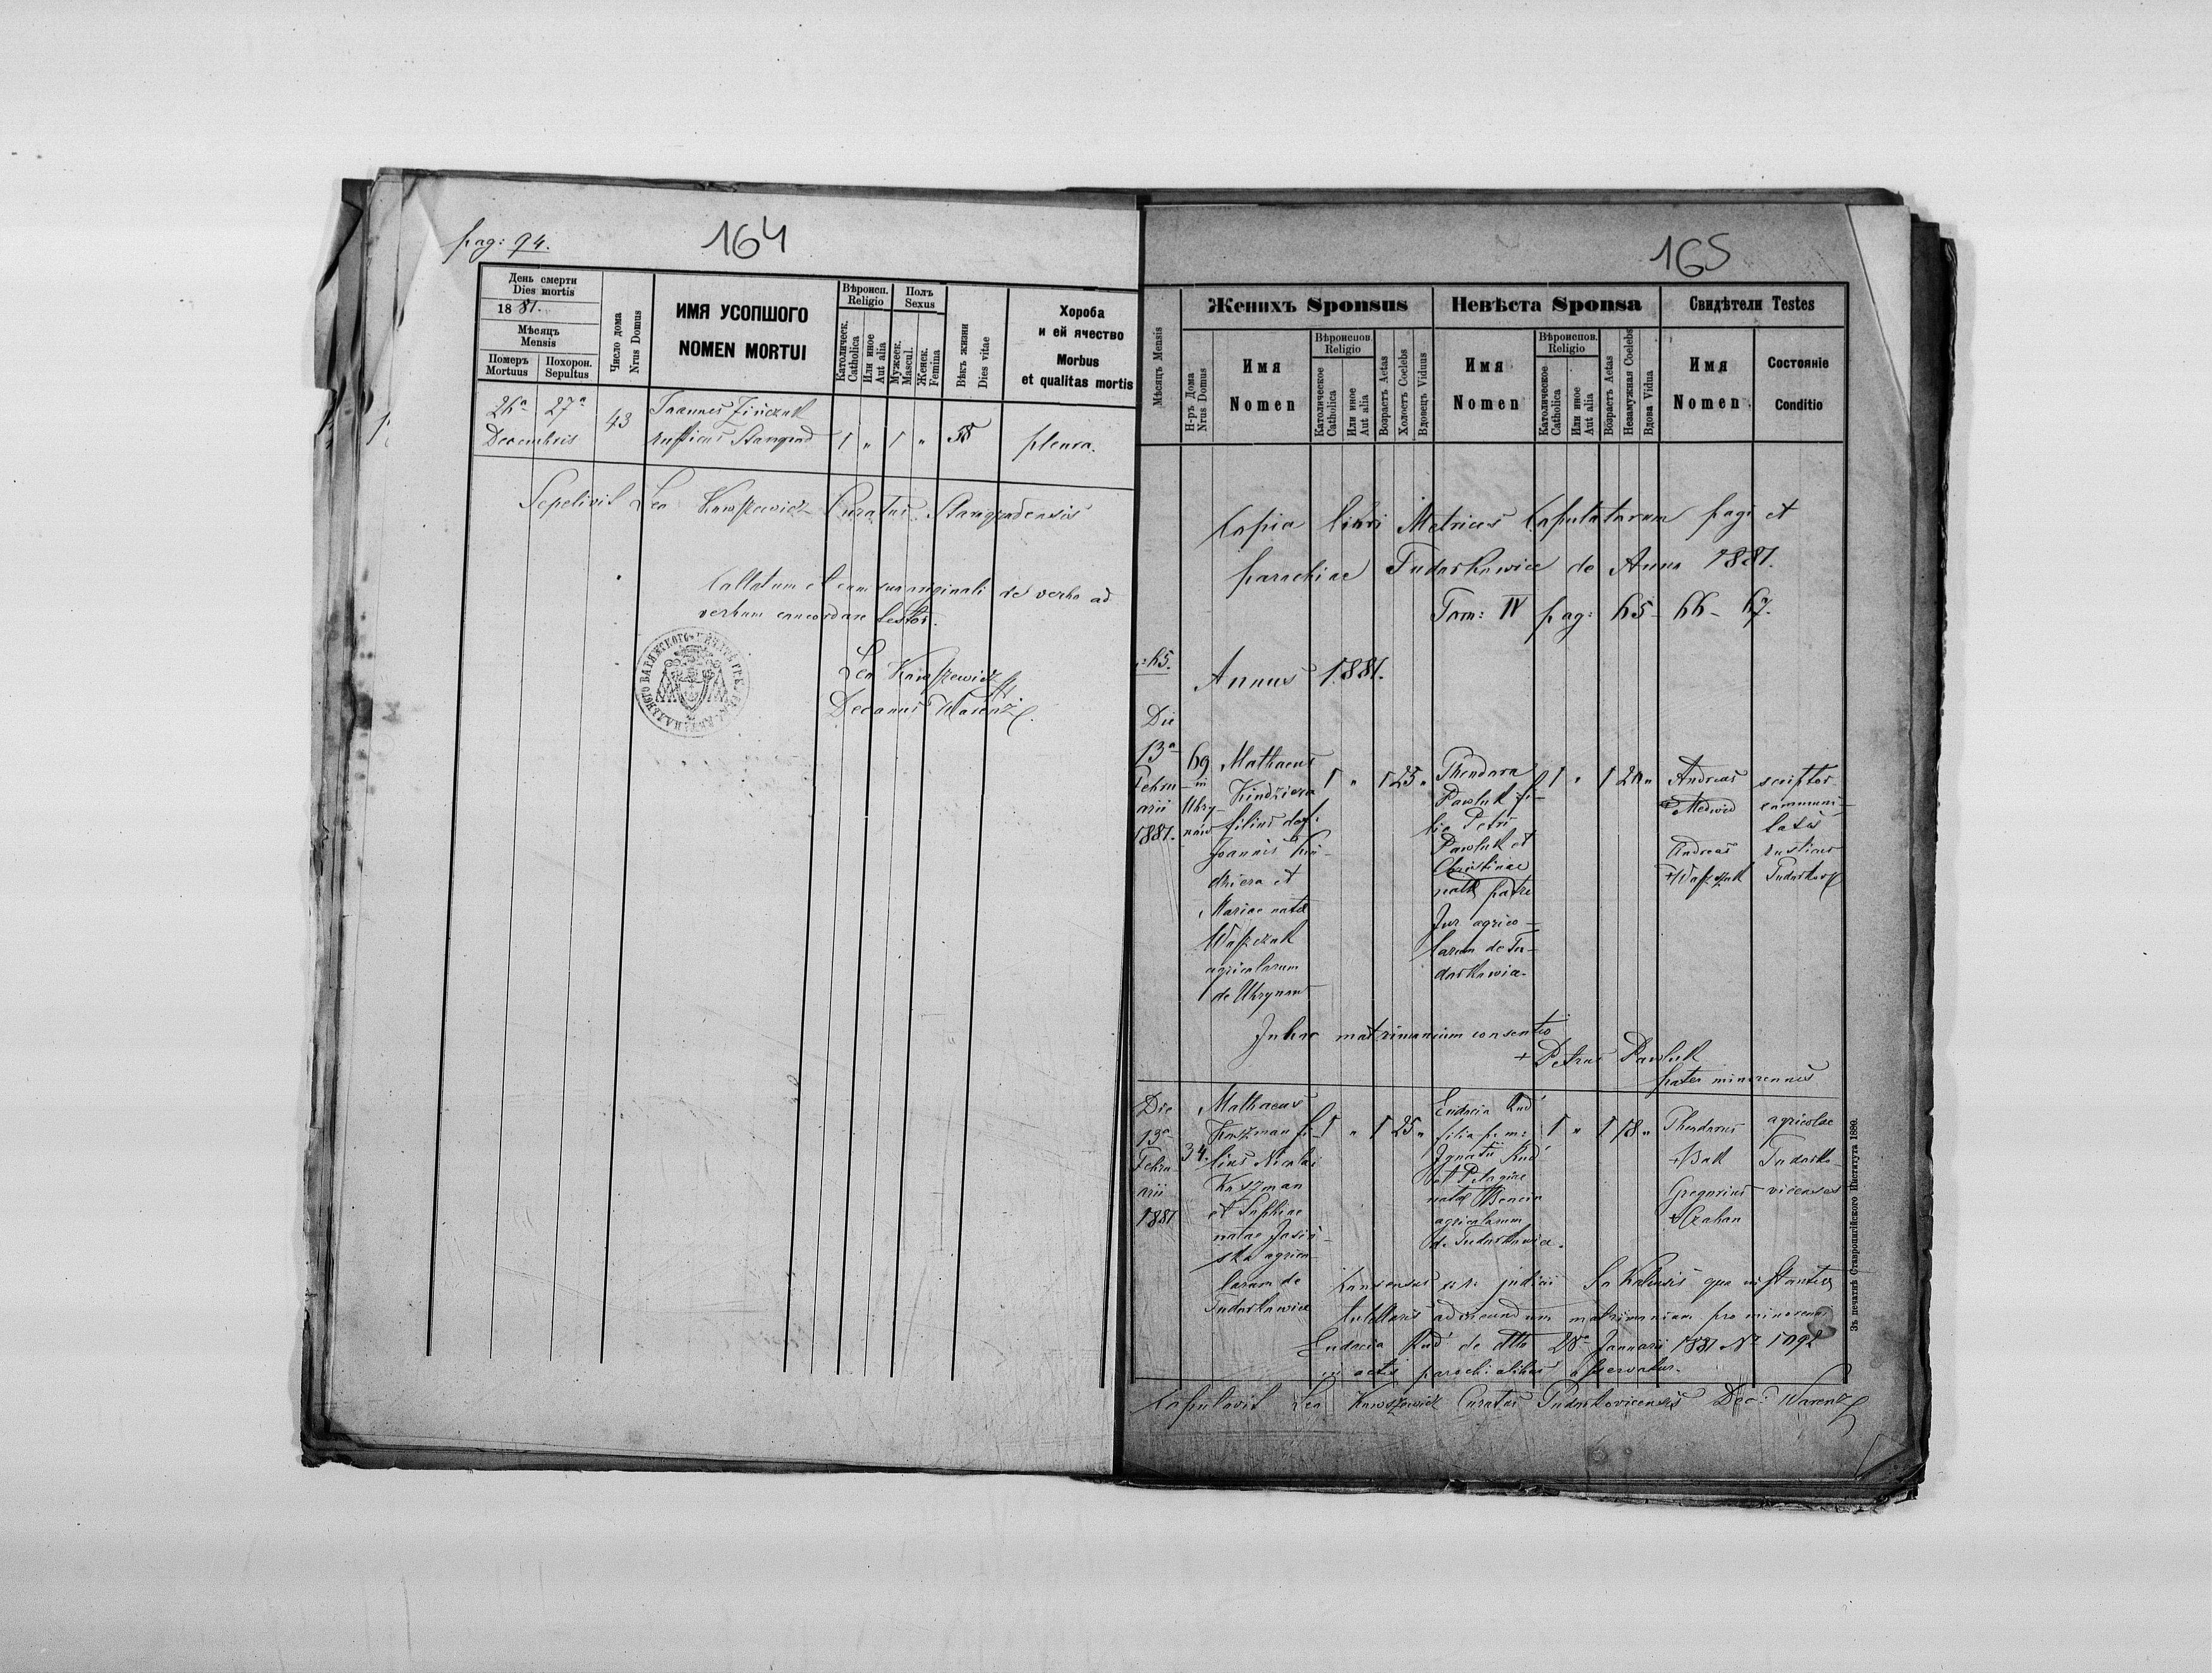 pag: 94.
164
День смерти
Dies mortis
1881.
Мѣсяцъ
Mensis
Померъ
Mortuus
Похорон.
Sepultus
Число дома
Nrus Domus
ИМЯ УСОПШОГО
NOMEN MORTUI
Вѣроисп.
Religio
Католическ.
Catholica
Или иное
Aut alia
Полъ
Sexus
Мужеск.
Mascul.
Женск.
Femina
Вѣкъ жизни
Dies vitae
Хороба
и ей ячество
Morbus
et qualitas mortis
26a 27a
Decembris
43
Joannes
rusticus Stargrod
1 „ 1 „ 58
pleura.
Sepelivit Leo Curatus Stargrodensis
Collatum et cum suo originali de verbo ad
verbum concordare testor.
Leo
Decanus Warenz.
165
Мѣсяцъ Mensis
Женихъ Sponsus
Н-ръ Дома
Nrus Domus
Имя
Nomen
Вѣроисповѣ.
Religio
Католическое
Catholica
Или иное
Aut alia
Возрастъ Aetas
Холостъ Coelebs
Вдовецъ Viduus
Невѣста Sponsa
Имя
Nomen
Вѣроисповѣ.
Religio
Католическое
Catholica
Или иное
Aut alia
Возрастъ Aetas
Незамужная Coelebs
Вдова Vidua
Свидѣтели Testes
Имя
Nomen.
Состояніе
Conditio
Copia Libri Metrices Copulatorum pagi et
parochiae Tudorkowice de Anno 1881.
Tom: IV pag: 65 - 66 - 67.
65.
Annus 1881.
Die
13a
Febru
arii
1881.
69
in
Uhry
nów
Mathaeus
Kindziera
filius def:
Joannis Kin
dziera et
Mariae natae
Waszczuk
agricolarum
de Uhrynow
1 „ 1 25 „
Theodora
Pawluk fi-
lia Petri
Pawluk et
Christinae
natae patre
Jur agrico-
larum de Tu-
dorkowice
1 „ 1 20 „
Andreas
+ Medwid
Andreas
+ Waszczuk
scriptor
communi-
tatis
rusticus
Tudorkow
In hoc matrimonium consentio
+ Petrus Pawluk
pater minorennis
Die
13a
Febru
arii
1881
34.
Mathaeus
Koszman fi-
lius Nicolai
Koszman
et Sophiae
natae Jasiń-
ska agrico-
larum de
Tudorkowice
1 „ 1 25 „
Eudocia Rud
filia p. m:
Ignatii Rud
et Pelagiae
natae
agricolarum
de Tudorkowice.
1 „ 1 18 „
Theodorus
+ Bak
Gregorius
+ Czaban
agricolae
Tudorko-
vicenses
Consensus judicii Sokaliensis qua instantiae
tutelaris ad ineundum matrimonium pro minorenni
Eudocia Rud de dtto 28a Januarii 1881 No 1092
in actis parochialibus asservatur.
Copulavit Leo Curatus Tudorkovicensis Dec: Warenz
Зъ печатнѣ Ставропигійского Института 1880.